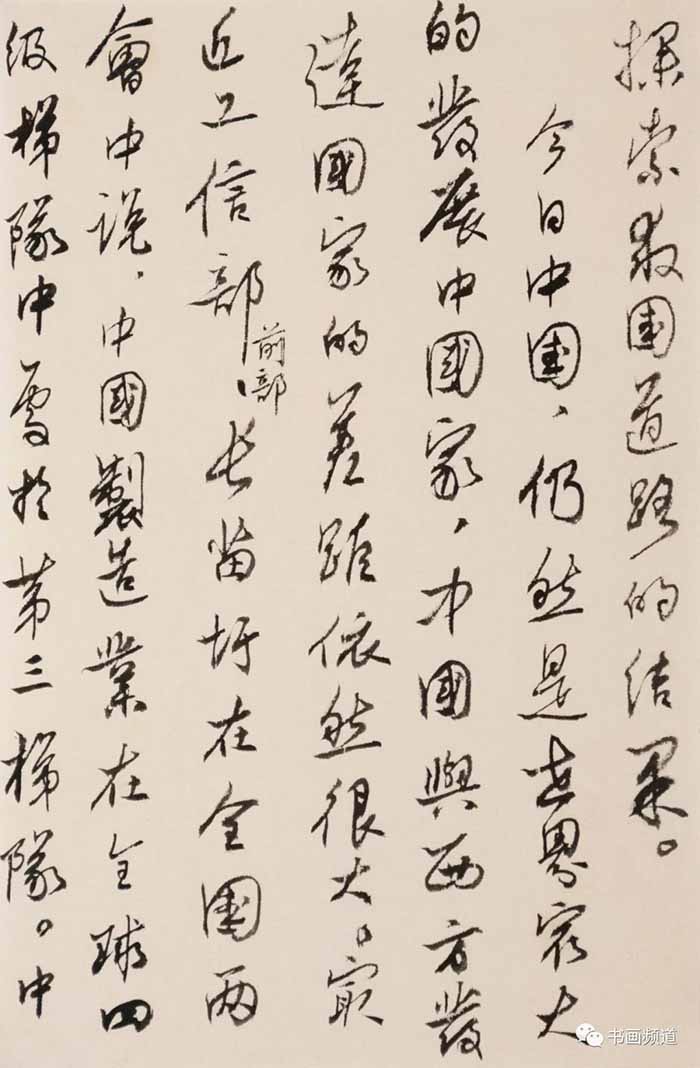 探索救國道路的結果。
今日中國、仍然是世界最大
的發展中國家，中國與西方發
達國家的差距依然很大。最
近工信部、長苗圩在全國兩
前部
會中說，中國製造業在全球四
级梯隊中處於第三梯隊。中
书画频道